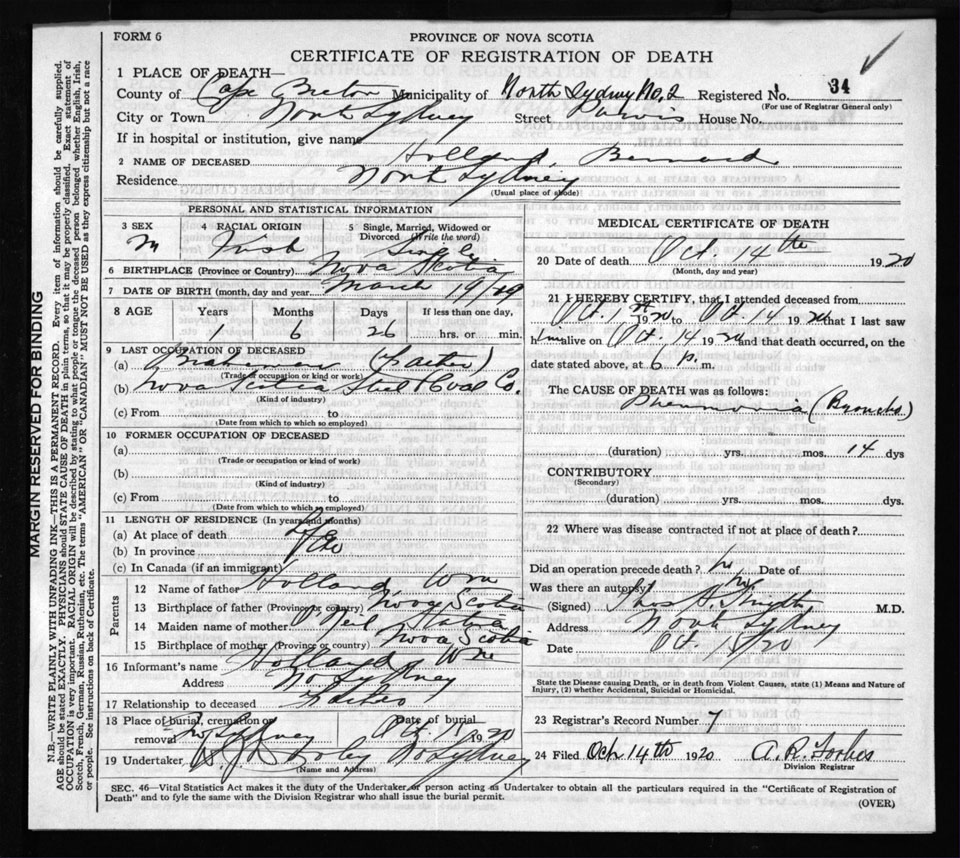 FORM 6
PROVINCE OF NOVA SCOTIA
CERTIFICATE OF REGISTRATION OF DEATH
1 PLACE OF DEATH—
County of Cape Breton Municipality of North Sydney No. 2 Registered No. 34
(For use of Registrar General only)
City or Town North Sydney Street Purvis House No.
If in hospital or institution, give name
2 NAME OF DECEASED Holland, Bernard
Residence North Sydney
(Usual place of abode)
PERSONAL AND STATISTICAL INFORMATION
3 SEX 4 RACIAL ORIGIN 5 Single, Married, Widowed or Divorced (Write the word)
M Irish Single
6 BIRTHPLACE (Province or Country) Nova Scotia
7 DATE OF BIRTH (month, day and year) March 19/19
8 AGE Years Months Days If less than one day,
1 6 26 hrs. or min.
9 LAST OCCUPATION OF DECEASED
(a) (Father)
(Trade or occupation or kind of work)
(b) Nova Scotia Steel & Coal Co.
(Kind of industry)
(c) From to
(Date from which to which so employed)
10 FORMER OCCUPATION OF DECEASED
(a)
(Trade or occupation or kind of work)
(b)
(Kind of industry)
(c) From to
(Date from which to which so employed)
11 LENGTH OF RESIDENCE (In years and months)
(a) At place of death Life
(b) In province do
(c) In Canada (if an immigrant)
Parents
12 Name of father Holland Wm
13 Birthplace of father (Province or country) Nova Scotia
14 Maiden name of mother O'Neil
15 Birthplace of mother (Province or country) Nova Scotia
16 Informant's name Holland, Wm
Address No Sydney
17 Relationship to deceased Father
18 Place of burial, cremation or removal No Sydney Date of burial Oct. 15 1920
19 Undertaker No Sydney
(Name and Address)
MEDICAL CERTIFICATE OF DEATH
20 Date of death Oct. 14th 1920
(Month, day and year)
21 I HEREBY CERTIFY, that I attended deceased from
Oct. 1st 1920 to Oct. 14 1920 that I last saw
him alive on Oct. 14 1920 and that death occurred, on
date stated above, at 6 p. m.
The CAUSE OF DEATH was as follows:
Pneumonia (Broncho)
(duration) yrs. mos. 14 dys
CONTRIBUTORY
(Secondary)
(duration) yrs. mos. dys.
22 Where was disease contracted if not at place of death?
Did an operation precede death? No Date of
Was there an autopsy No
(Signed) Thos A. M.D.
Address North Sydney
Date Oct. 15/20
State the Disease causing Death, or in death from Violent Causes, state (1) Means and Nature of
Injury, (2) whether Accidental, Suicidal or Homicidal.
23 Registrar's Record Number 7
24 Filed Oct 14th 1920 A. R. Forbes
Division Registrar
SEC. 46—Vital Statistics Act makes it the duty of the Undertaker or person acting as Undertaker to obtain all the particulars required in the "Certificate of Registration of
Death" and to fyle the same with the Division Registrar who shall issue the burial permit.
(OVER)
MARGIN RESERVED FOR BINDING
N.B.—WRITE PLAINLY WITH UNFADING INK—THIS IS A PERMANENT RECORD. Every item of information should be carefully supplied.
AGE should be stated EXACTLY. PHYSICIANS should STATE CAUSE OF DEATH in plain terms, so that it may be properly classified. Exact statement of
OCCUPATION is very important. RACIAL ORIGIN will be described by stating to what people or tongue the deceased person belonged whether English, Irish,
Scotch, French, German, Russian, Ruthenian, etc. The terms "AMERICAN" OR "CANADIAN" MUST NOT BE USED as they express citizenship but not a race
or people. See instructions on back of Certificate.